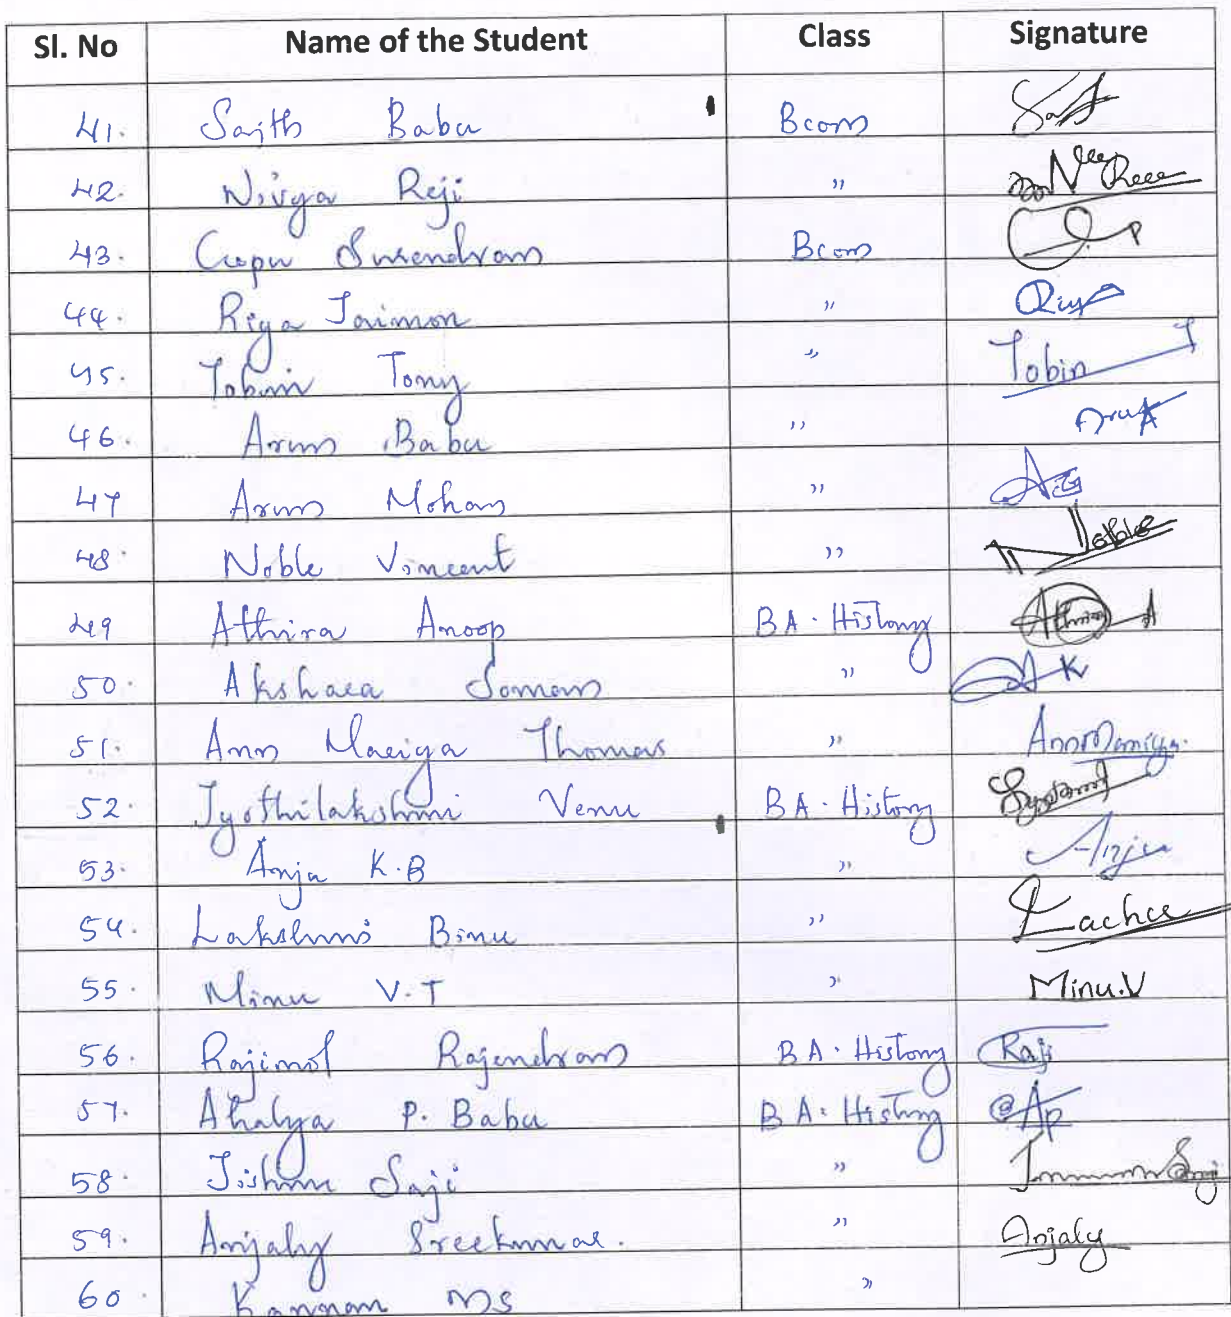 Sl. No Name of the Student Class Signature
41. Sajith Babu Bcom
42. Nivya Reji "
43. Gopu Surendran Bcom
44. Riya Jaimon " Riya
45. Tobin Tony " Tobin T
46. Arun Babu " Arun
47 Arun Mohan "
48. Noble Vincent " Noble
49 Athira Anoop BA. History Athira A
50. Akshara Soman " AK
51. Ann Mariya Thomas " Ann Mariya.
52. Jyothilakshmi Venu BA. History
53. Anju K.B " Anju
54. Lakshmi Binu "
55. Minu V.T " Minu.V
56. Rajimol Rajendran BA. History Raji
57. Ahalya P. Babu BA. History
58. Jishnu Saji "
59. Anjaly Sreekumar. " Anjaly
60. Kannan MS "